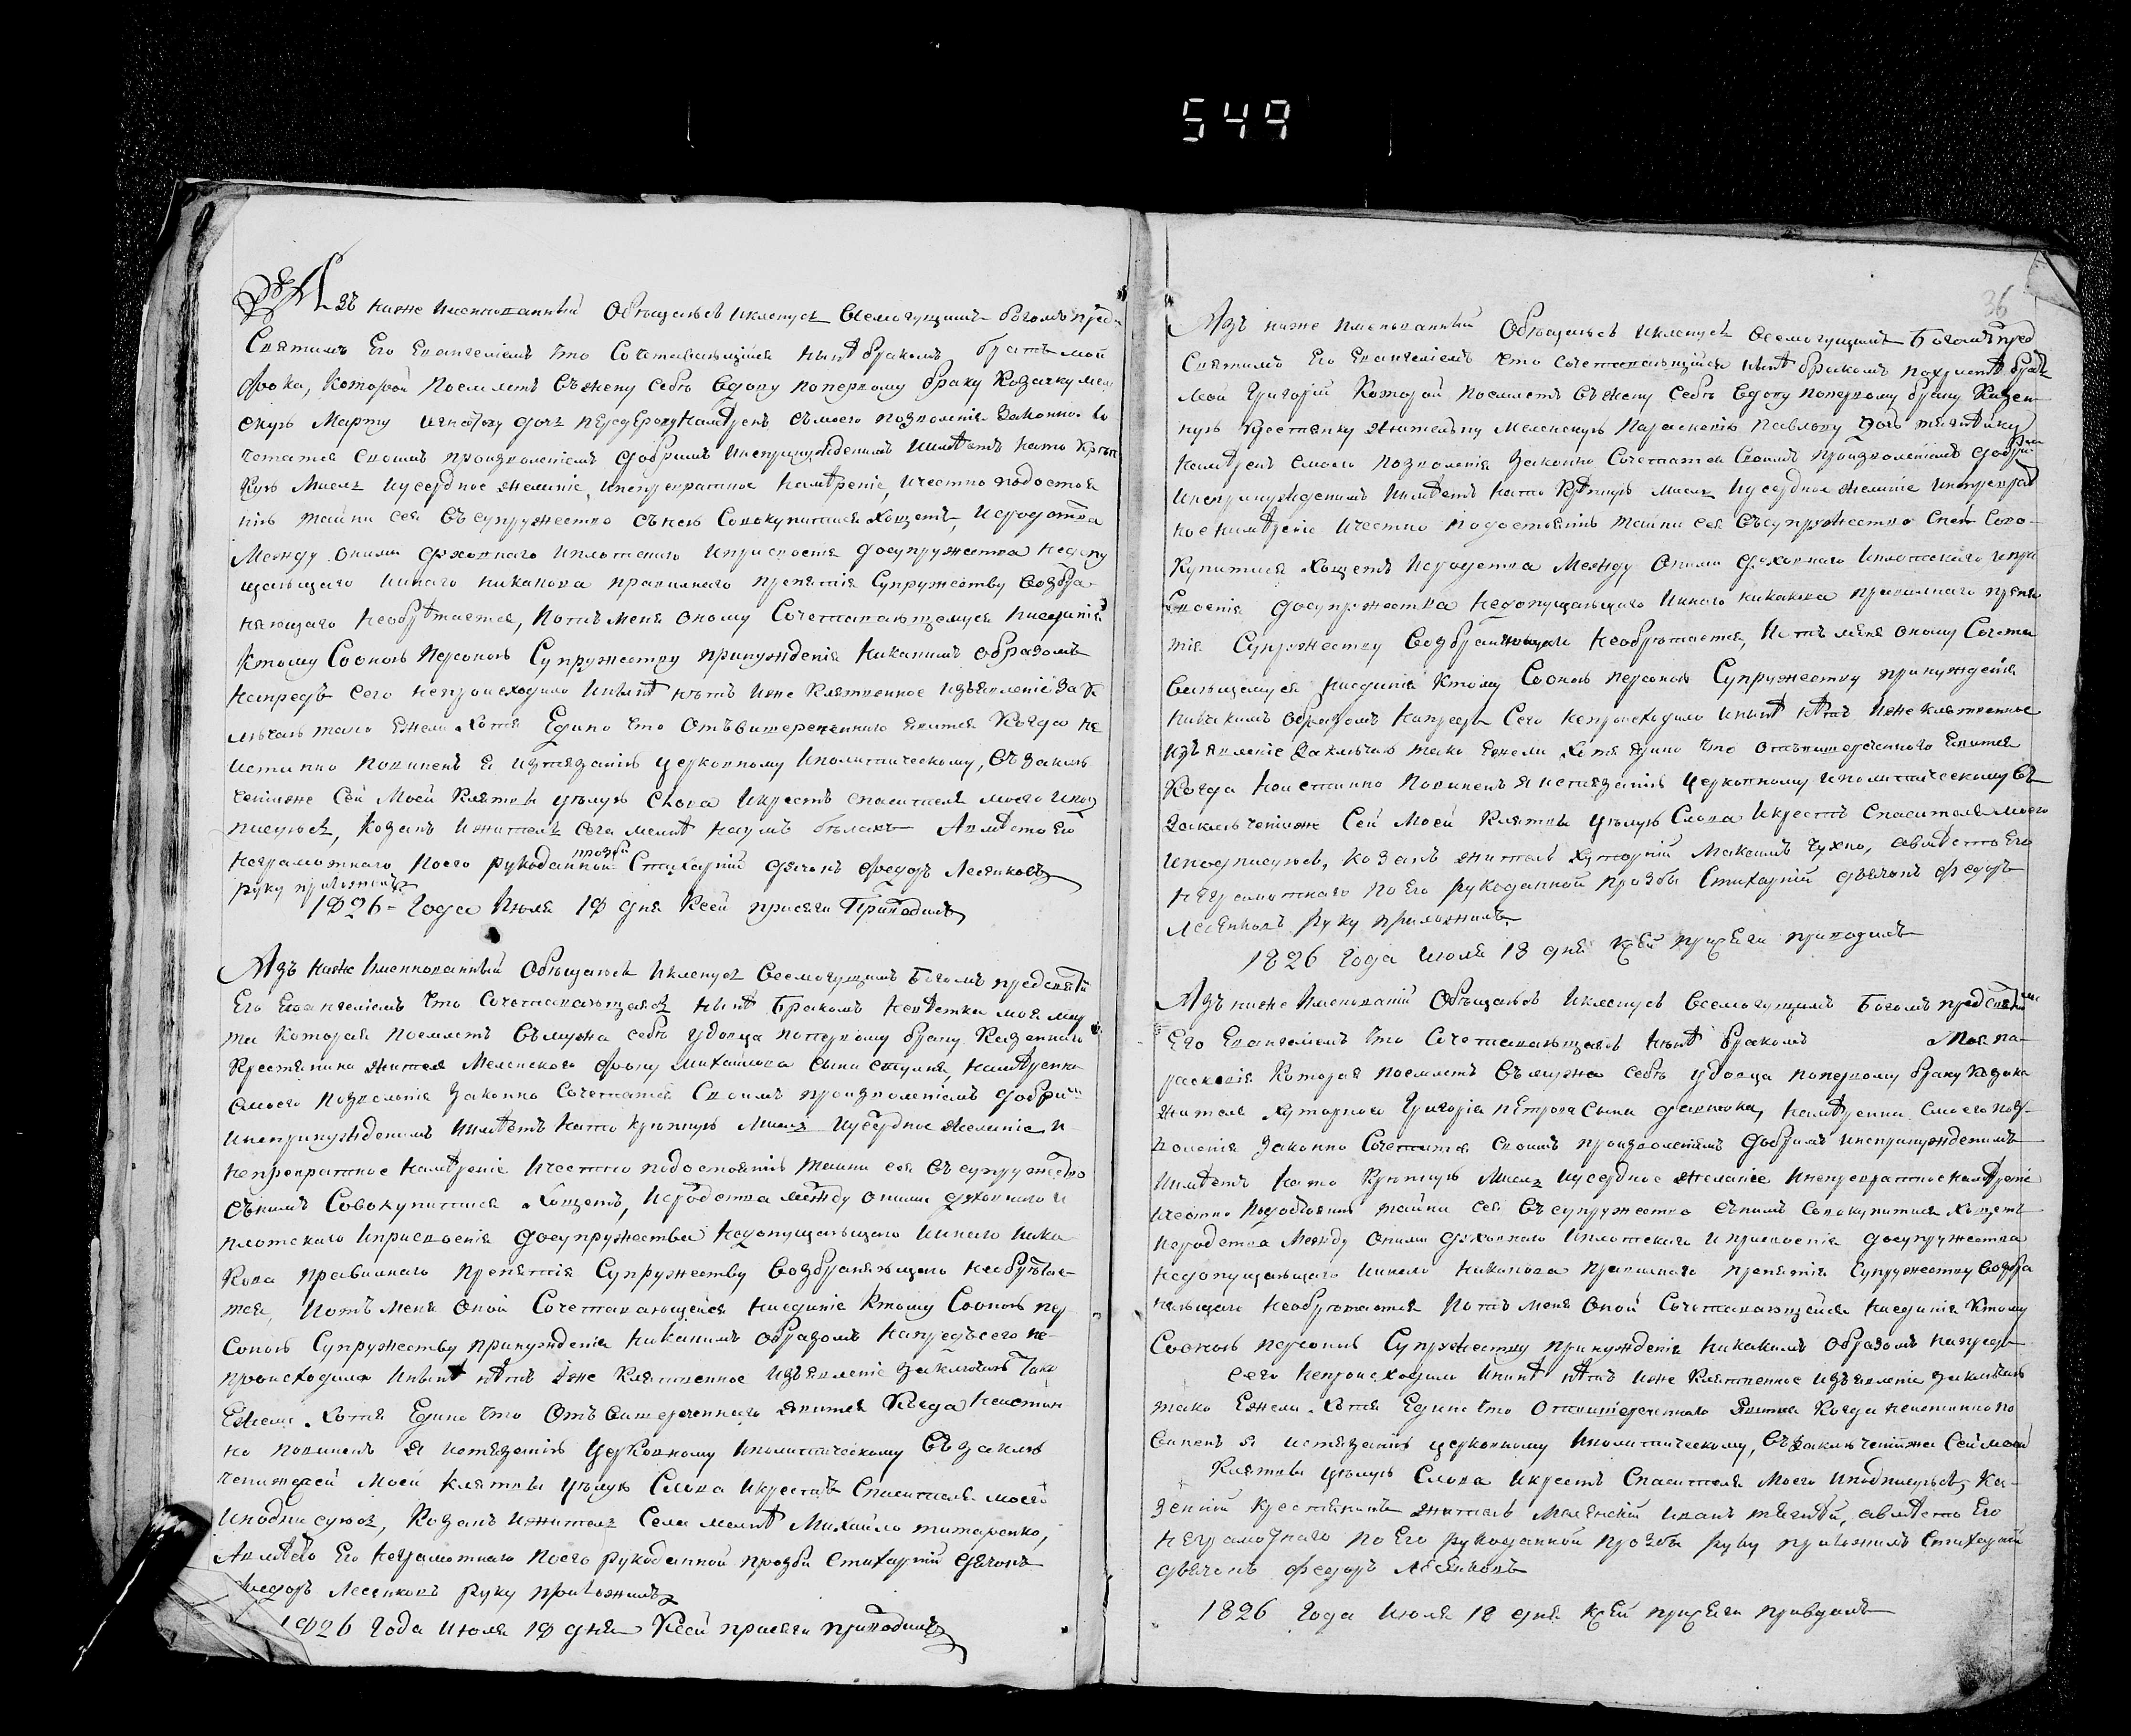 549
Азъ ниже Именнованный Обѣщаюсь иклянусь Всемогущимъ Богомъ пред
Святымъ Его Евангелиемъ что Сочетавающийся нынѣ бракомъ братъ мой
Фока, Которой поемлетъ въ жену себѣ вдову поперьвому браку Козачку мел
скую Марфу дочь Намѣренъ съ моего позволенія Законно со
четатся своимъ произволениемъ добримъ инепринужденимъ имѣетъ нато крѣп
кую мысль иусердное желание, инепревратное намѣреніе, ичестно подостоя
нію тайни сея въ супружество съ нею Совокупитися хощетъ, иродства
Между оними духовнаго иплотскаго иприсвоенія досупружества недопу
щающаго ииного никакова правилнаго препятія Супружеству возбра
няющаго необрѣтается, иотъ меня оному Сочетавающемуся ниединія
Ктому Сооною персоною Супружеству принужденія никакимъ образомъ
напредъ сего непроисходило инынѣ нѣтъ иже клятвенное изъявленіе зак
лючаю тако ежели хотя Едино что отъ вишереченнихъ явится когда не
истинно повиненъ я изтязанію церковному иполитическому, въ заклю
ченіиже Сей Моей Клятвы цѣлую слова икрестъ спасителя моего ипод
писуюсь, козакъ ижитель села мелнѣ наумъ бѣлакъ Авмѣсто Его
неграмотнаго поего рукоданной прозбѣ Стихарній дячокъ Федоръ Лесенковъ
руку приложилъ
1826 года Июля 18 дня Ксей присяги Приводилъ
Азъ ниже Именнованный Обѣщаюсь иклянусь Всемогущимъ Богомъ предсвятим
Его Евангелиемъ что Сочетавающаясь нынѣ Бракомъ невѣстка моя мар
фа которая поемлетъ въ мужа себѣ удовца поперьвому браку Казеннаго
Крестянина жителя Меленского Фоку Михайлова сына намѣренна
смоего позволенія законно Сочетатся Своимъ произволениемъ добрим
инепринужденимъ имѣетъ нато крѣпкую мысль иусердное желание и
непревратное намѣрение ичестно подостоянію тайни сея въ супружество
съ нимъ Совокупитися хощетъ, иродства между оними духовнаго и
плотскаго иприсвоения досупружества недопущающаго ииного ника
кова правилнаго препятія Супружеству возбраняющаго необрѣтае
тся, иотъ меня оной Сочетавающейся ниединіе Ктому Сооною пер
соною Супружеству принужденія никакимъ образомъ напредъсего не
происходило инынѣ нѣтъ иже клятвенное изъявленіе заключаю тако
Ежели хотя Едино что отъ вишереченнаго явится когда неистин
но повиненъ я истязанію церковному иполитическому въ заклю
ченіижесей моей клятвы цѣлую слова икрестъ Спасителя моего
иподписуюсь, козакъ ижитель села мелнѣ Михайло титаренко,
Авмѣсто Его неграмотнаго поего рукоданной прозби стихарній дячокъ
Федоръ Лесенковъ руку приложилъ
1826 года Июля 18 дня Ксей присяги приводилъ
36
Азъ ниже Именованный Обѣщаюсь иклянусь всемогущимъ Богомъ пред
Святимъ Его Евангелиемъ что сочетавающийся нынѣ бракомъ братъ
мой Григорій Которой поемлетъ въ жену себѣ вдову поперьвому браку Казен
ную крестянку жителку Меленскую Параскевію Павлову дочь
намѣренъ смоего позволенія законно Сочетатся Своимъ произволениемъ добрим
инепринужденимъ имѣетъ нато крѣпкую мысль иусердное желание инепреврат
ное намѣреніе ичестно подостоянію тайни сея въ супружество сней Сово
купитися хощетъ иродства Между оними духовнаго иплотскаго ипри
своенія досупружества недопущающаго ииного никакова правилнаго препя
тія Супружеству возбраняющаго необрѣтается, иотъ меня оному Сочета
вающемуся ниединія Ктому Сооною персоною Супружеству принужденія
никакимъ образомъ напредъ Сего непроисходило инынѣ нѣтъ иже клятвенное
изъявленіе заключаю тако ежели хотя едино что отъ вишереченного явится
Когда неистинно повиненъ я истязанію церковному иполитическому въ
заключеніиже Сей Моей Клятвы цѣлую Слова икрестъ Спасителя моего
иподписуюсь, козакъ житель хуторній Максимъ Чухно, авмѣсто Его
неграмотнаго по Его рукоданной прозбѣ Стихарній дьячокъ Федоръ
Лесенковъ руку приложилъ
1826 года июля 18 дня ксей присяги приводилъ
Азъ ниже Именованій Обѣщаюсь иклянусь Всемогущимъ Богомъ предсвятим
Его Евангелиемъ что Сочетавающаясь нынѣ бракомъ моя па
раскевія Которая поемлетъ въ мужа себѣ удовца поперьвому браку козака
жителя хуторного Григорія Петрова сына намѣренни смоего поз
воленія законно Сочетатся своимъ произволениемъ добримъ инепринужденимъ
имѣетъ нато крѣпкую мысль иусердное желаніе инепревратное намѣреніе
ичестно подостоянію тайни сея въ супружество съ нимъ совокупитися хощетъ
иродства Между оними духовнаго иплотскаго иприсвоенія досупружества
недопущающаго ииного никакова правилнаго препятія Супружеству возбра
няющаго необрѣтается иотъ меня оной Сочетавающейся ниединія Ктому
Сооною персоною Супружеству принужденія никакимъ образомъ напредъ
сего непроисходило инынѣ нѣтъ иже клятвенное изъявленіе заключаю
тако Ежели хотя Едино что отвишереченнаго явится когда неистинно по
виненъ я истязанію церковному иполитическому, въ заключеніиже Сей моей
Клятвы цѣлую Слова икрестъ Спасителя Моего иподписуюсь, Ка
зенній крестянинъ житель Меленскій иванъ авмѣсто Его
неграмотнаго по Его рукоданной прозбѣ руку приложилъ Стихарній
дьячокъ Федоръ Лесенковъ
1826 года Июля 18 дня ксей присяги приводилъ